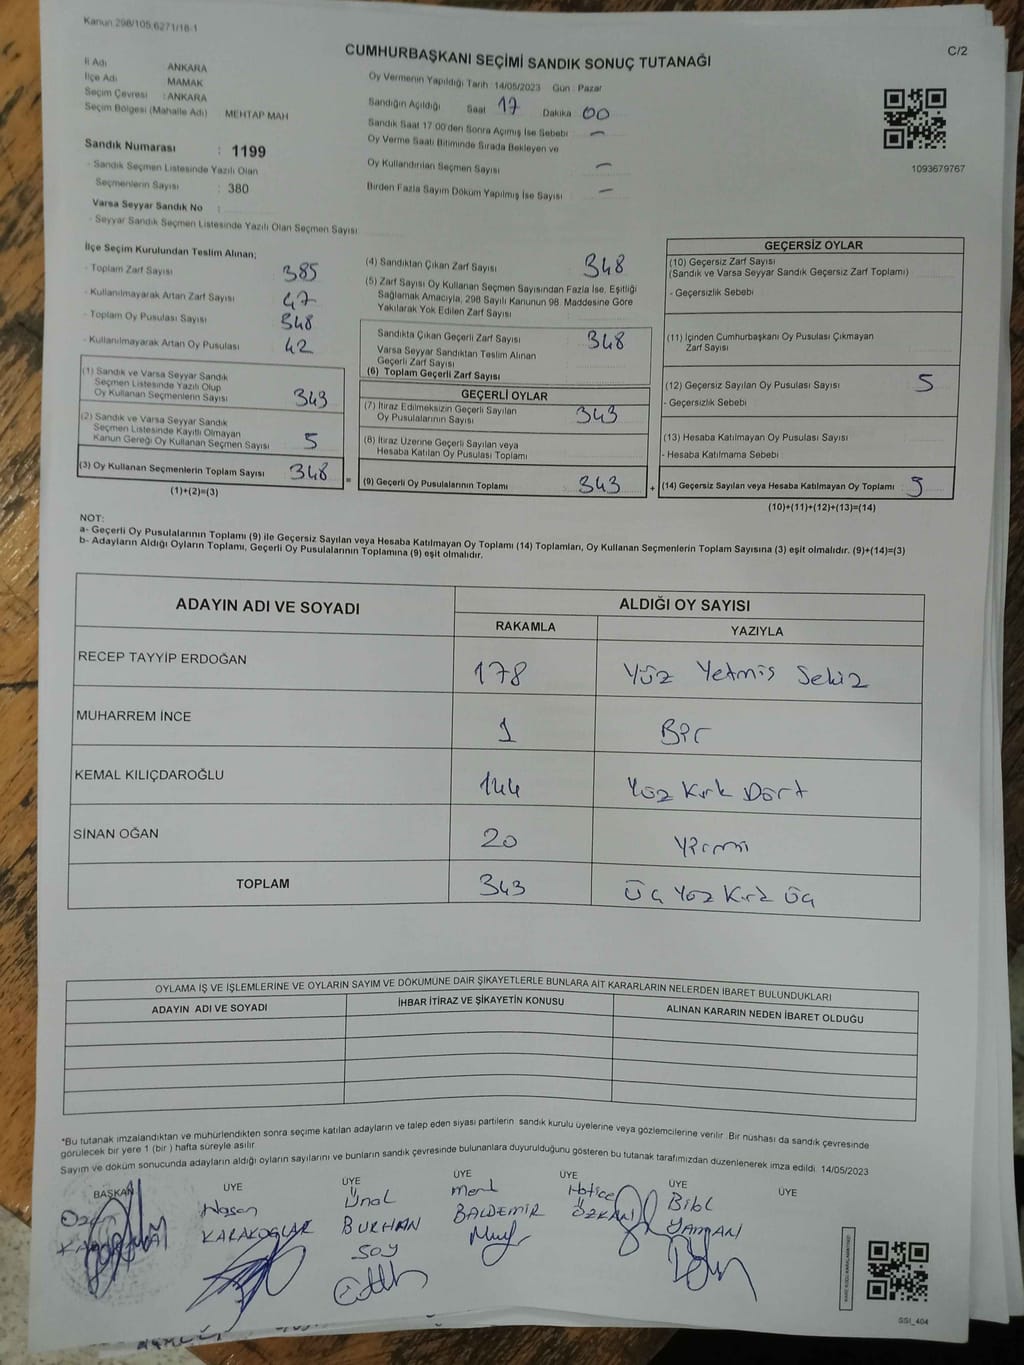 Kanun 298/105,6271/18-1
C/2
CUMHURBAŞKANI SEÇİMİ SANDIK SONUÇ TUTANAĞI
İl Adı ANKARA
İlçe Adı MAMAK
Seçim Çevresi : ANKARA
Seçim Bölgesi (Mahalle Adı) MEHTAP MAH
Sandık Numarası : 1199
- Sandık Seçmen Listesinde Yazılı Olan
Seçmenlerin Sayısı : 380
Varsa Seyyar Sandık No :
- Seyyar Sandık Seçmen Listesinde Yazılı Olan Seçmen Sayısı
Oy Vermenin Yapıldığı Tarih : 14/05/2023 Gün : Pazar
Sandığın Açıldığı Saat 17 Dakika 00
Sandık Saat 17:00'den Sonra Açımış İse Sebebi : —
Oy Verme Saati Bitiminde Sırada Bekleyen ve
Oy Kullandırılan Seçmen Sayısı : —
Birden Fazla Sayım Döküm Yapılmış İse Sayısı : —
1093679767
İlçe Seçim Kurulundan Teslim Alınan;
- Toplam Zarf Sayısı 385
- Kullanılmayarak Artan Zarf Sayısı 47
- Toplam Oy Pusulası Sayısı 348
- Kullanılmayarak Artan Oy Pusulası 42
(1) Sandık ve Varsa Seyyar Sandık
Seçmen Listesinde Yazılı Olup
Oy Kullanan Seçmenlerin Sayısı 343
(2) Sandık ve Varsa Seyyar Sandık
Seçmen Listesinde Kayıtlı Olmayan
Kanun Gereği Oy Kullanan Seçmen Sayısı 5
(3) Oy Kullanan Seçmenlerin Toplam Sayısı 348 =
(1)+(2)=(3)
(4) Sandıktan Çıkan Zarf Sayısı 348
(5) Zarf Sayısı Oy Kullanan Seçmen Sayısından Fazla İse, Eşitliği
Sağlamak Amacıyla, 298 Sayılı Kanunun 98. Maddesine Göre
Yakılarak Yok Edilen Zarf Sayısı
Sandıkta Çıkan Geçerli Zarf Sayısı 348
Varsa Seyyar Sandıktan Teslim Alınan
Geçerli Zarf Sayısı
(6) Toplam Geçerli Zarf Sayısı
GEÇERLİ OYLAR
(7) İtiraz Edilmeksizin Geçerli Sayılan
Oy Pusulalarının Sayısı 343
(8) İtiraz Üzerine Geçerli Sayılan veya
Hesaba Katılan Oy Pusulası Toplamı
(9) Geçerli Oy Pusulalarının Toplamı 343 +
GEÇERSİZ OYLAR
(10) Geçersiz Zarf Sayısı
(Sandık ve Varsa Seyyar Sandık Geçersiz Zarf Toplamı)
- Geçersizlik Sebebi
(11) İçinden Cumhurbaşkanı Oy Pusulası Çıkmayan
Zarf Sayısı
(12) Geçersiz Sayılan Oy Pusulası Sayısı 5
- Geçersizlik Sebebi
(13) Hesaba Katılmayan Oy Pusulası Sayısı
- Hesaba Katılmama Sebebi
(14) Geçersiz Sayılan veya Hesaba Katılmayan Oy Toplamı 5
(10)+(11)+(12)+(13)=(14)
NOT:
a- Geçerli Oy Pusulalarının Toplamı (9) ile Geçersiz Sayılan veya Hesaba Katılmayan Oy Toplamı (14) Toplamları, Oy Kullanan Seçmenlerin Toplam Sayısına (3) eşit olmalıdır. (9)+(14)=(3)
b- Adayların Aldığı Oyların Toplamı, Geçerli Oy Pusulalarının Toplamına (9) eşit olmalıdır.
ADAYIN ADI VE SOYADI ALDIĞI OY SAYISI
RAKAMLA YAZIYLA
RECEP TAYYİP ERDOĞAN 178 Yüz Yetmiş Sekiz
MUHARREM İNCE 1 Bir
KEMAL KILIÇDAROĞLU 144 Yüz Kırk Dört
SİNAN OĞAN 20 Yirmi
TOPLAM 343 Üç Yüz Kırk Üç
OYLAMA İŞ VE İŞLEMLERİNE VE OYLARIN SAYIM VE DÖKÜMÜNE DAİR ŞİKAYETLERLE BUNLARA AİT KARARLARIN NELERDEN İBARET BULUNDUKLARI
ADAYIN ADI VE SOYADI İHBAR İTİRAZ VE ŞİKAYETİN KONUSU ALINAN KARARIN NEDEN İBARET OLDUĞU
*Bu tutanak imzalandıktan ve mühürlendikten sonra seçime katılan adayların ve talep eden siyasi partilerin sandık kurulu üyelerine veya gözlemcilerine verilir. Bir nüshası da sandık çevresinde
görülecek bir yere 1 (bir) hafta süreyle asılır.
Sayım ve döküm sonucunda adayların aldığı oyların sayılarını ve bunların sandık çevresinde bulunanlara duyurulduğunu gösteren bu tutanak tarafımızdan düzenlenerek imza edildi. 14/05/2023
BAŞKAN ÜYE ÜYE ÜYE ÜYE ÜYE ÜYE
Hasan Ünal Mert Hatice
KARAKOÇLAR BURHAN BALDEMİR ÖZKAN YAMAN
SOY
SSI_404